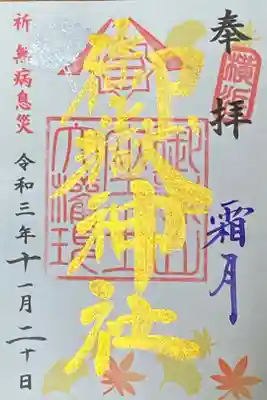 奉拝
霜月
横浜
御嶽神社
祈 無病息災
令和三年十一月二十日